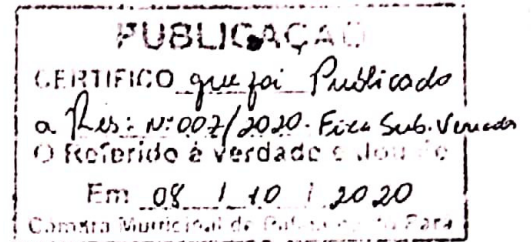 PUBLICAÇÃO
CERTIFICO que foi Publicado
a Res: Nº 002/2020. Fixa Sub. Vereador
O Referido é verdade e dou fé
Em 08 / 10 / 2020
Câmara Municipal de Pará